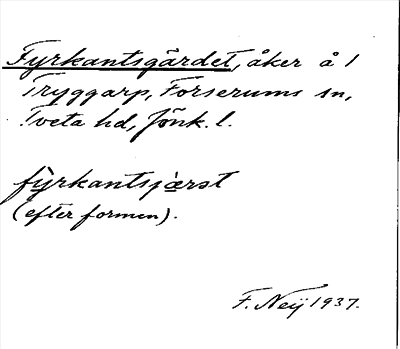 Fyrkantsgärdet, åker å 1
Tryggarp, Forserums sn,
Tveta hd, Jönk. l.
fỳrkantsjæ̀rst
(efter formen).
F. Neij 1937.